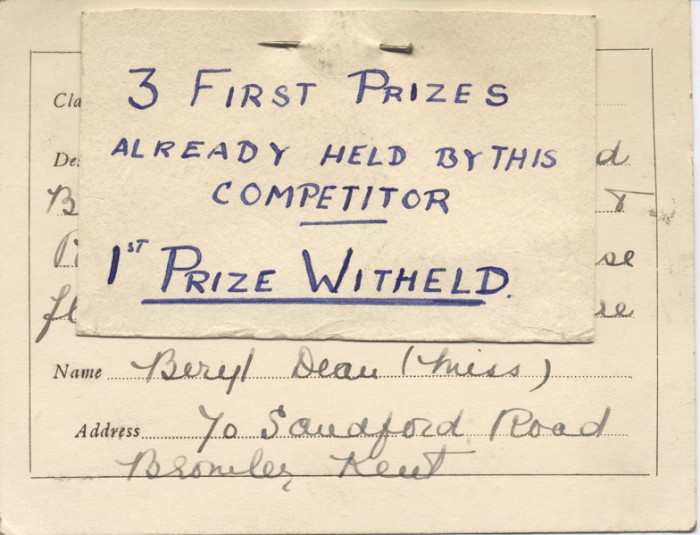 3 FIRST PRIZES
Cla
ALREADY HELD BY THIS
De d
COMPETITOR
B
1ST PRIZE WITHELD.
se
fl
Name Beryl Dean (Miss)
Address 70 Sandford Road
Bromley Kent